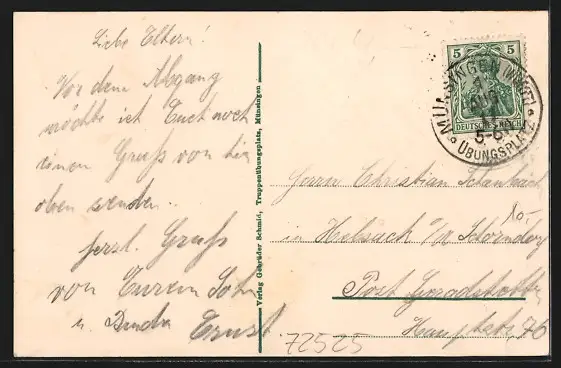 Liebe Eltern!
Vor dem Abgang
möchte ich Euch noch
einen Gruß von hier
oben senden.
Herzl. Gruß
von Eurem Sohn
u. Bruder Ernst
Verlag Gebrüder Schmid, Truppenübungsplatz, Münsingen
5 5
DEUTSCHES REICH
MÜNSINGEN (WÜRTT)
5-6
ÜBUNGSPLATZ
Herrn Christian
10,-
in
Post
72525